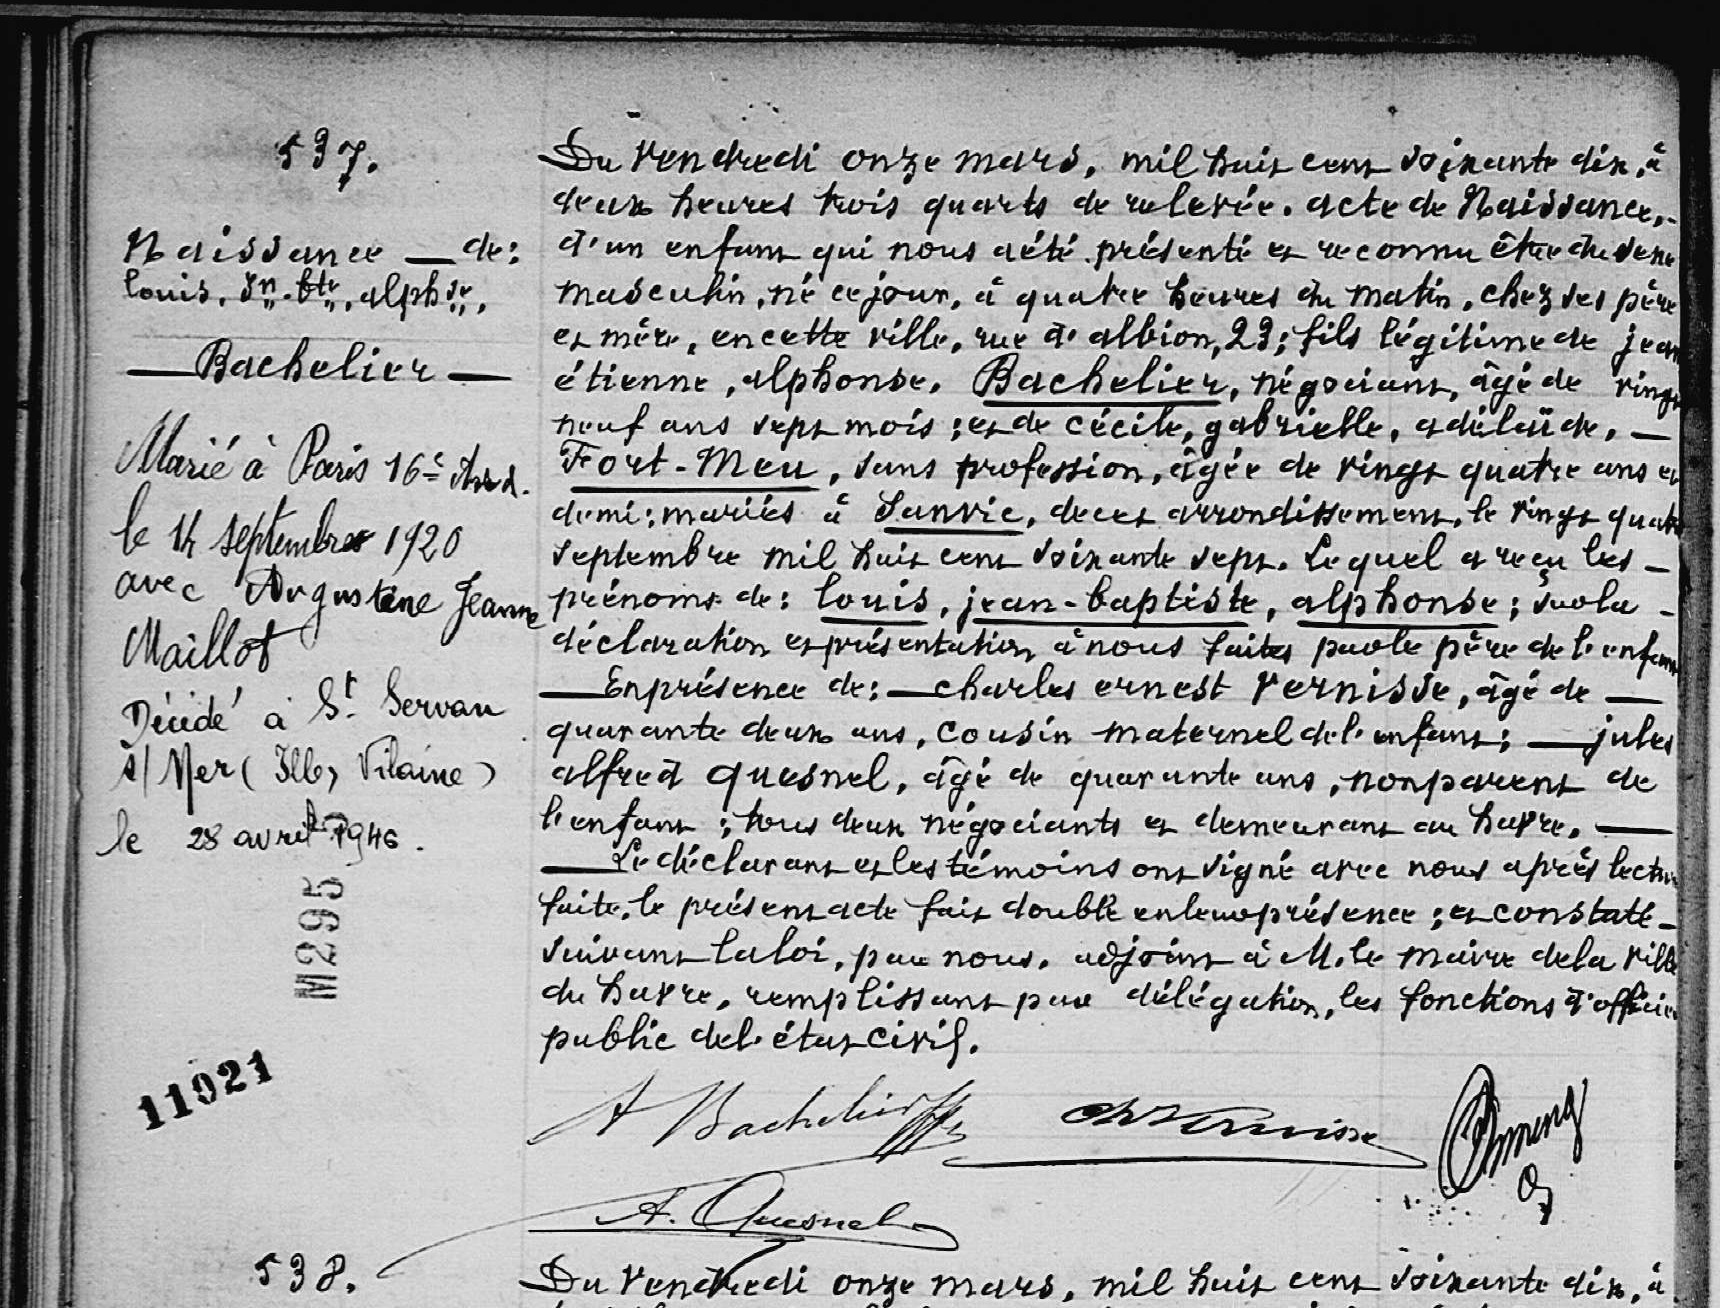 537.
Naissance — de:
louis, Jn. bte, alphse,
— Bachelier —
Marié à Paris 16e Arrd.
le 14 septembre 1920
avec Augustine Jeanne
Maillot
Décidé à St. Servan
s/ Mer (Ille, Vilaine)
le 28 avril 1946.
M295
11921
Du Vendredi onze mars, mil huit cent soixante dix, à
deux heures trois quarts de relevée. acte de Naissance,
d'un enfant qui nous a été présenté et reconnu être du sexe
masculin, né ce jour, à quatre heures du matin, chez ses père
et mère, en cette ville, rue d'albion, 23; fils légitime de jean
étienne, alphonse, Bachelier, négociant, âgé de vingt
neuf ans sept mois; et de cécile, gabrielle, adélaïde, —
Fort-Meu, sans profession, âgée de vingt quatre ans et
demi; mariés à Sanvic, de cet arrondissement, le vingt quatre
septembre mil huit cent soixante sept. Lequel a reçu les —
prénoms de: louis, jean-baptiste, alphonse; sur la —
déclaration et présentation à nous faites par le père de l'enfant
— En présence de: — charles ernest Vernisse, âgé de —
quarante deux ans, cousin maternel de l'enfant; — jules
alfred quesnel, âgé de quarante ans, non parent de
l'enfant; tous deux négociants et demeurant au havre. —
— Le déclarant et les témoins ont signé avec nous après lecture
faite, le présent acte fait double en leur présence; et constaté —
suivant la loi, par nous, adjoint à M. le maire de la ville
du havre, remplissant par délégation, les fonctions d'officier
public de l'état civil.
A Bachelier
Ch Vernisse
A. Quesnel
538.
Du Vendredi onze mars, mil huit cent soixante dix, à